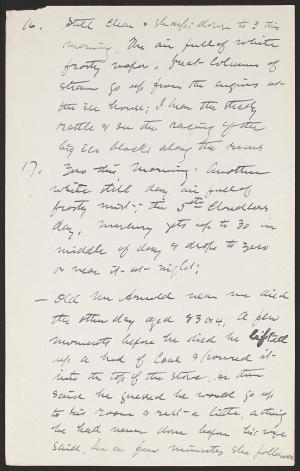 16. Still clear & sharp: down to 3 this
morning. The air full of white
frosty vapor, great columns of
steam go up from the engines at
the ice house; I hear the steady
rattle & see the racing of the
big ice blocks along the runs
17. Zero this morning: Another
white still day, air full of
frosty mist; the 5th cloudless
day, mercury gets up to 30 in
middle of day & drops to zero
or near it at night;
— Old Mr Arnold near me died
the other day aged 83 or 4. A few
moments before he died he lifted
up a hod of coal & poured it
into the top of the stove, & then
said he guessed he would go up
to his room & rest a little, a thing
he had never done before his wife
said. In a few minutes she followed